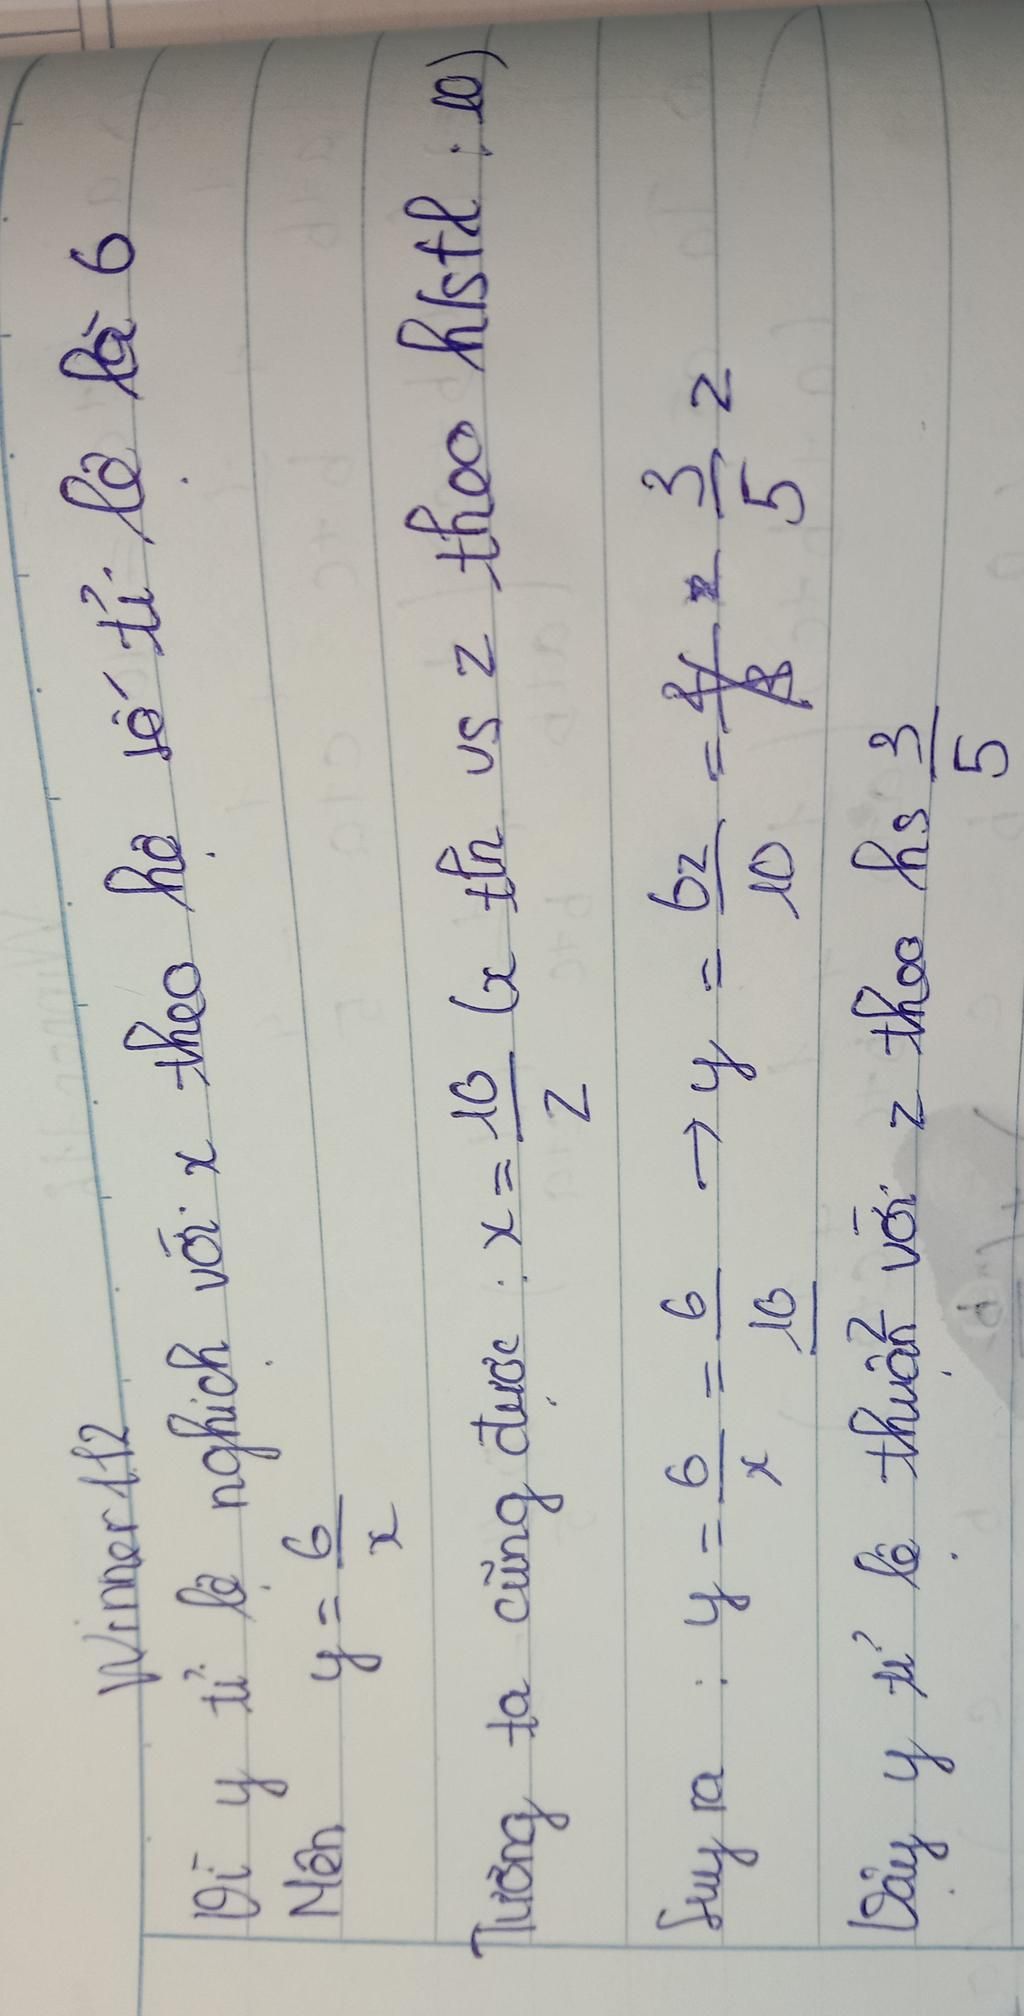 Winner112
Vì y tỉ lệ nghịch với x theo hệ số tỉ lệ là 6
Nên y = 6/x
Tương ta cũng được : x = 10/z (x tln vs z theo hstl : 10)
Suy ra : y = 6/x = 6/(10/z) → y = 6z/10 = 3/5 z
Vậy y tỉ lệ thuận với z theo hs 3/5